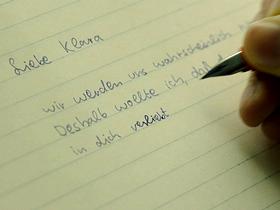 Liebe Klara
wir werden uns wahrscheinlich
Deshalb wollte ich, daß
in dich verliebt